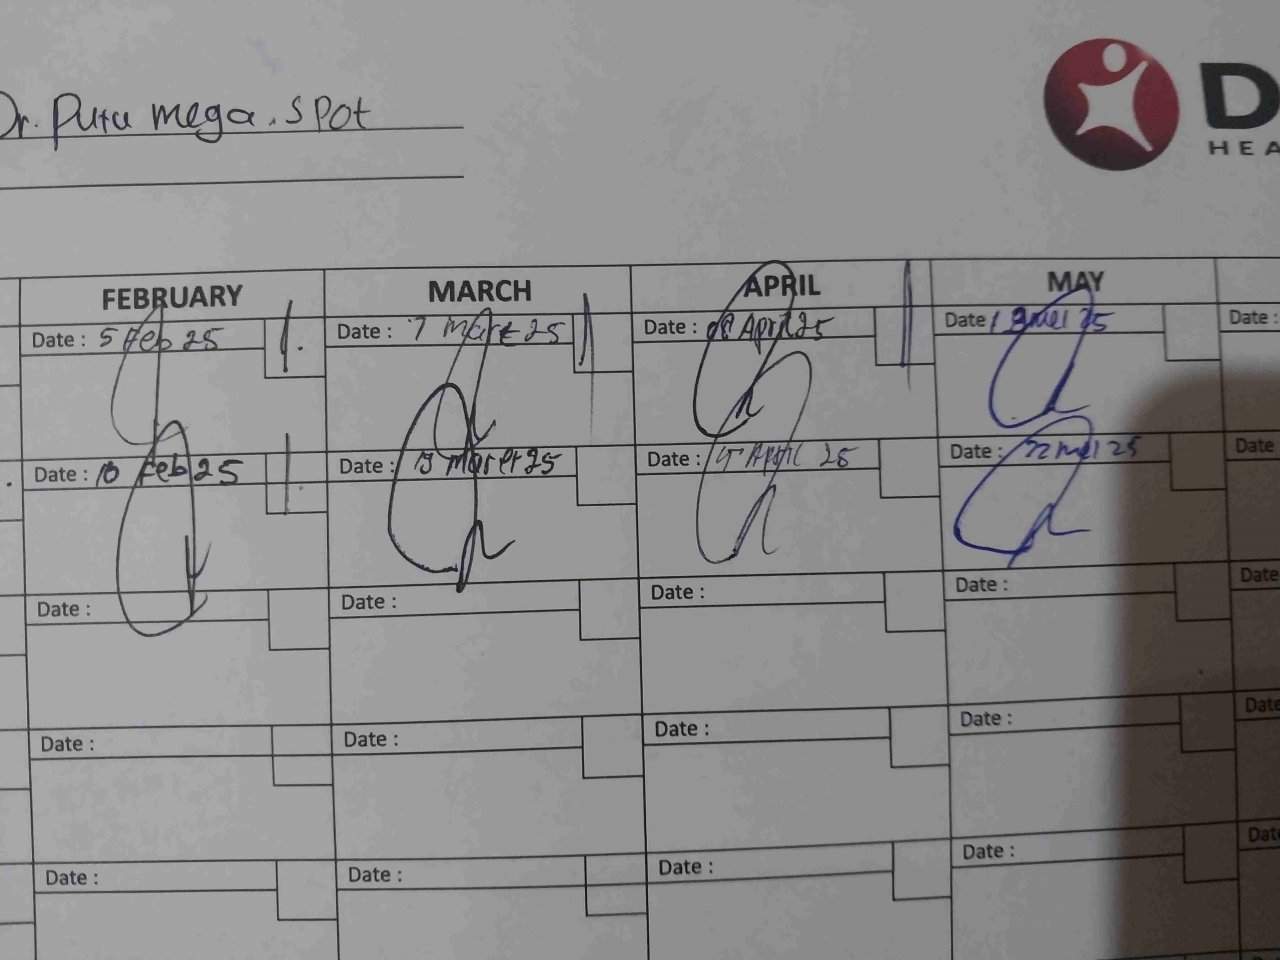 Dr. Putu mega. SPOT
D
HEA
FEBRUARY MARCH APRIL MAY
Date : 5 Feb 25 Date : 7 Maret 25 Date : 08 April 25 Date 13 mei 25 Date :
Date : 10 Feb 25 Date : 19 Maret 25 Date : April 25 Date : 22 mei 25 Date
Date : Date : Date : Date : Date
Date : Date : Date : Date : Date
Date : Date : Date : Date : Dat
Da